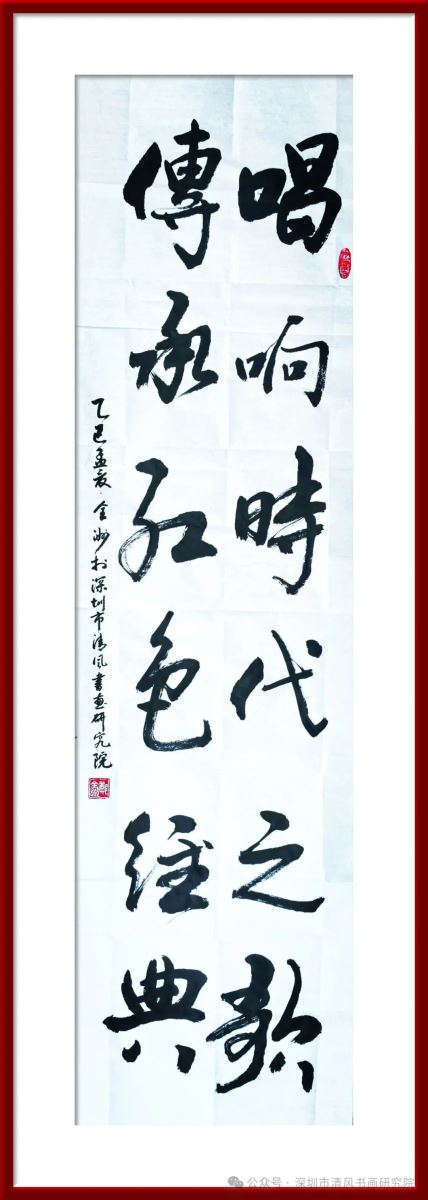 唱响時代之歌
傳承红色經典
乙巳孟夏·金洲於深圳市清风書画研究院
公众号·深圳市清风书画研究院